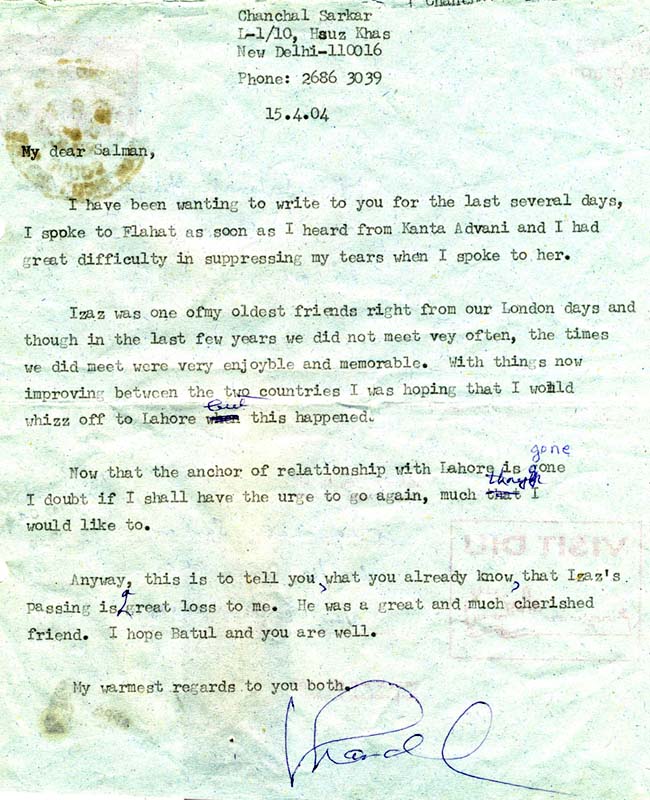 Chanchal Sarkar
L-1/10, Hsuz Khas
New Delhi-110016
Phone: 2686 3039
15.4.04
My dear Salman,
I have been wanting to write to you for the last several days,
I spoke to Flahat as soon as I heard from Kanta Advani and I had
great difficulty in suppressing my tears when I spoke to her.
Izaz was one ofmy oldest friends right from our London days and
though in the last few years we did not meet vey often, the times
we did meet were very enjoyble and memorable. With things now
improving between the two countries I was hoping that I would
but
whizz off to Lahore when this happened.
gone
Now that the anchor of relationship with Lahore is gone
though
I doubt if I shall have the urge to go again, much that I
would like to.
Anyway, this is to tell you, what you already know, that Izaz's
passing is a great loss to me. He was a great and much cherished
friend. I hope Batul and you are well.
My warmest regards to you both.
VISIT DIU